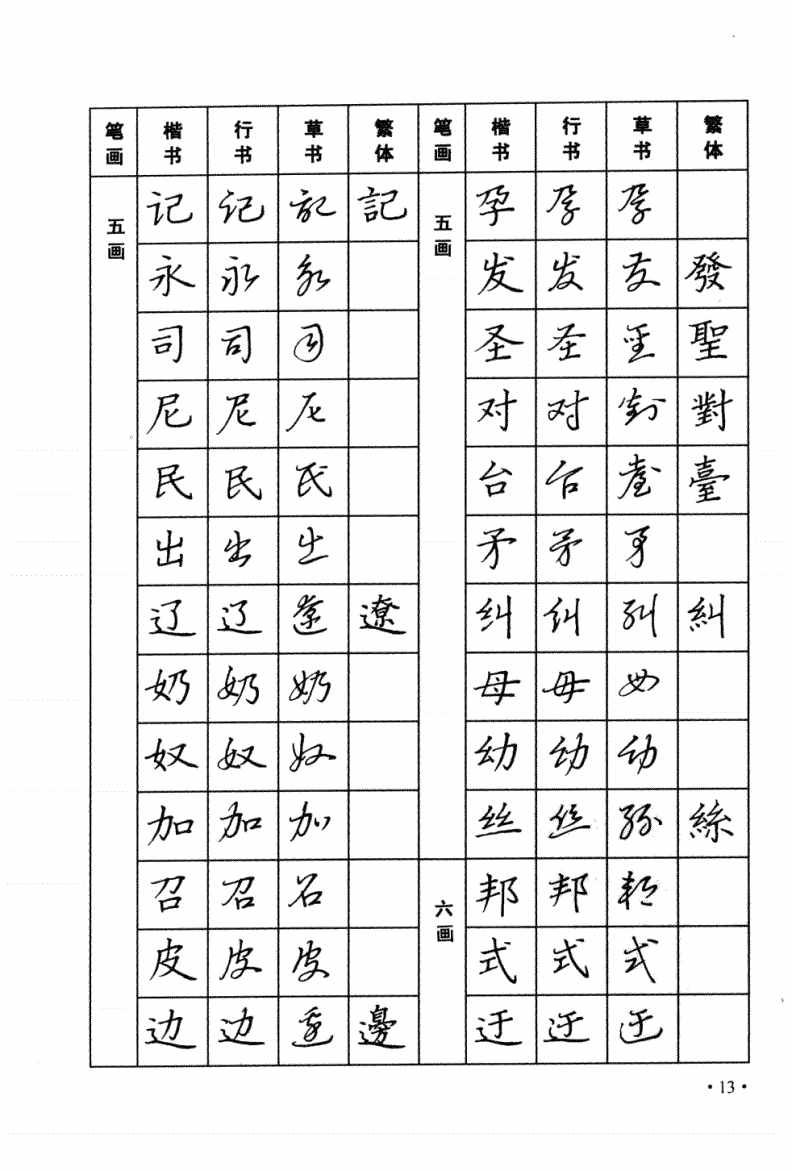 笔画 楷书 行书 草书 繁体 笔画 楷书 行书 草书 繁体
五画 记 记 记 記 五画 孕 孕 孕
永 永 永 发 发 发 發
司 司 司 圣 圣 圣 聖
尼 尼 尼 对 对 对 對
民 民 民 台 台 台 臺
出 出 出 矛 矛 矛
辽 辽 辽 遼 纠 纠 纠 糾
奶 奶 奶 母 母 母
奴 奴 奴 幼 幼 幼
加 加 加 丝 丝 丝 絲
召 召 召 六画 邦 邦 邦
皮 皮 皮 式 式 式
边 边 边 邊 迂 迂 迂
·13·